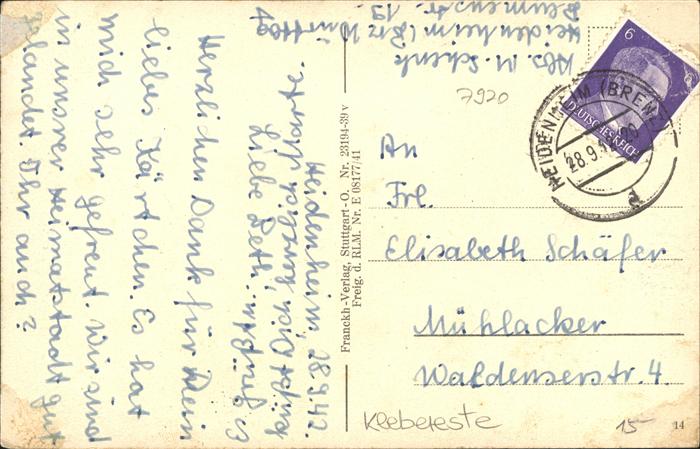 Heidenheim, 28.9.42.
Liebe Beth!
Herzlichen Dank für Dein
liebes Kärtchen. Es hat
mich sehr gefreut. Wir sind
in unsrer Heimatstadt gut
gelandet. Ihr auch?
Abs. M. Schenk
Heidenheim (Brz Württbg
Blumenstr. 13
Franckh-Verlag, Stuttgart-O. Nr. 23194-39 v
Freig. d. RLM. Nr. E 08177/41
7920
6
DEUTSCHES REICH
HEIDENHEIM (BRENZ)
28.9.
d
An
Frl.
Elisabeth Schäfer
Mühlacker
Waldenserstr. 4.
Klebereste
15-
14